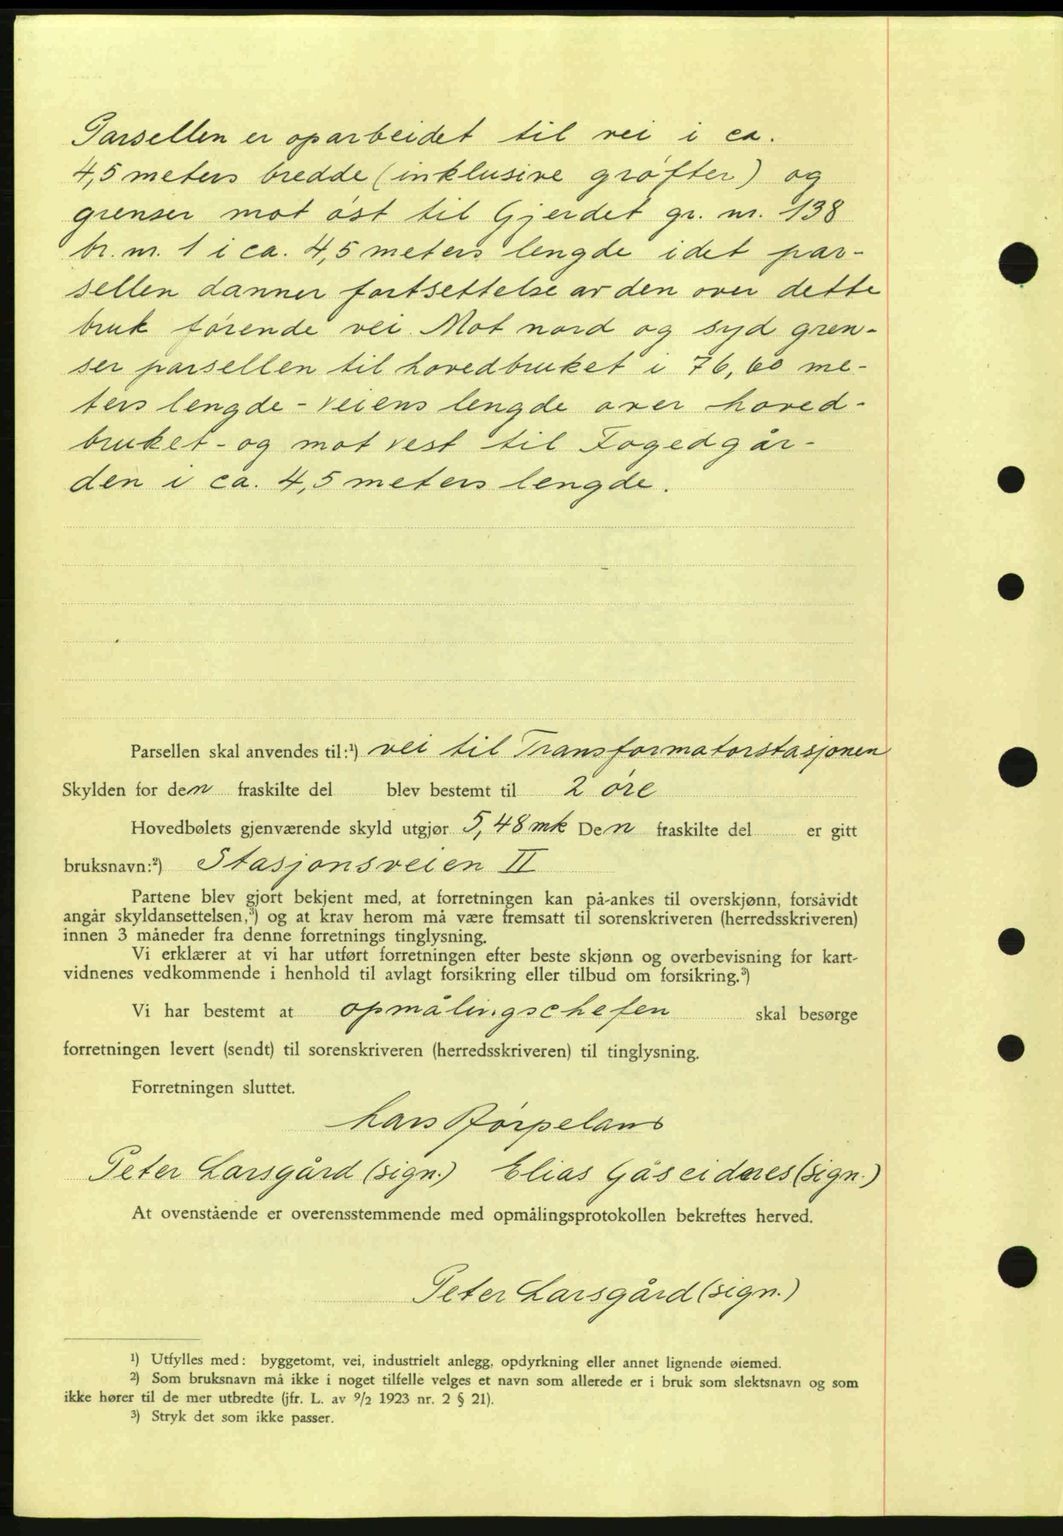 Parsellen er oparbeidet til vei i ca.
4,5 meters bredde (inklusive grøfter) og
grenser mot øst til Gjerdet gr. nr. 138
br. nr. 1 i ca. 4,5 meters lengde idet par-
sellen danner fortsettelse av den over dette
bruk førende vei. Mot nord og syd gren-
ser parsellen til hovedbruket i 76,60 me-
ters lengde - veiens lengde over hoved-
bruket - og mot vest til Fogedgår-
den i ca. 4,5 meters lengde.
Parsellen skal anvendes til:¹) vei til Transformatorstasjonen
Skylden for den fraskilte del blev bestemt til 2 øre
Hovedbølets gjenværende skyld utgjør 5,48 mk Den fraskilte del er gitt
bruksnavn:²) Stasjonsveien II
Partene blev gjort bekjent med, at forretningen kan på-ankes til overskjønn, forsåvidt
angår skyldansettelsen,³) og at krav herom må være fremsatt til sorenskriveren (herredsskriveren)
innen 3 måneder fra denne forretnings tinglysning.
Vi erklærer at vi har utført forretningen efter beste skjønn og overbevisning for kart-
vidnenes vedkommende i henhold til avlagt forsikring eller tilbud om forsikring.³)
Vi har bestemt at opmålingschefen skal besørge
forretningen levert (sendt) til sorenskriveren (herredsskriveren) til tinglysning.
Forretningen sluttet.
Lars Jørpeland
Peter Larsgård (sign.) Elias Gåseidnes (sign.)
At ovenstående er overensstemmende med opmålingsprotokollen bekreftes herved.
Peter Larsgård (sign.)
¹) Utfylles med: byggetomt, vei, industrielt anlegg, opdyrkning eller annet lignende øiemed.
²) Som bruksnavn må ikke i noget tilfelle velges et navn som allerede er i bruk som slektsnavn og som
ikke hører til de mer utbredte (jfr. L. av 9/2 1923 nr. 2 § 21).
³) Stryk det som ikke passer.